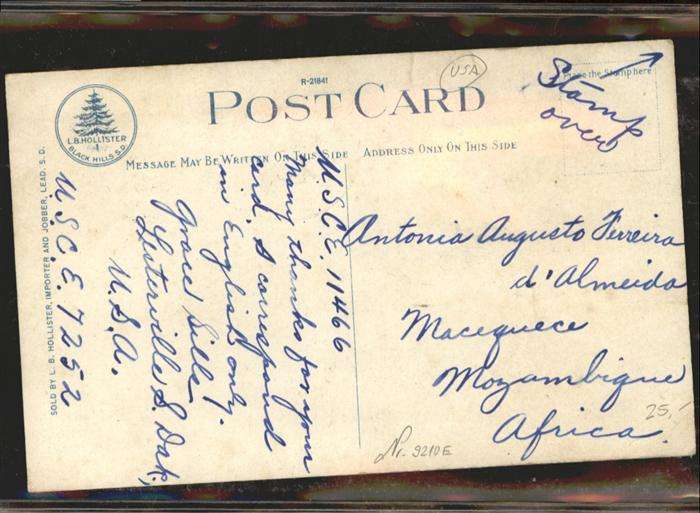 R-21841
USA
POST CARD
Place the Stamp here
Stamp
over
L.B. HOLLISTER
BLACK HILLS. S.D.
MESSAGE MAY BE WRITTEN ON THIS SIDE
ADDRESS ONLY ON THIS SIDE
SOLD BY L. B. HOLLISTER, IMPORTER AND JOBBER, LEAD, S. D.
U.S.C.E. 11466
Many thanks for your
card. I correspond
in English only.
Grace Sills
Lesterville S. Dak,
U.S.A.
U.S.C.E. 7252
Antonia Augusto Ferreira
d'Almeida
Macequece
Mozambique
Africa.
25,-
Nr. 9210E